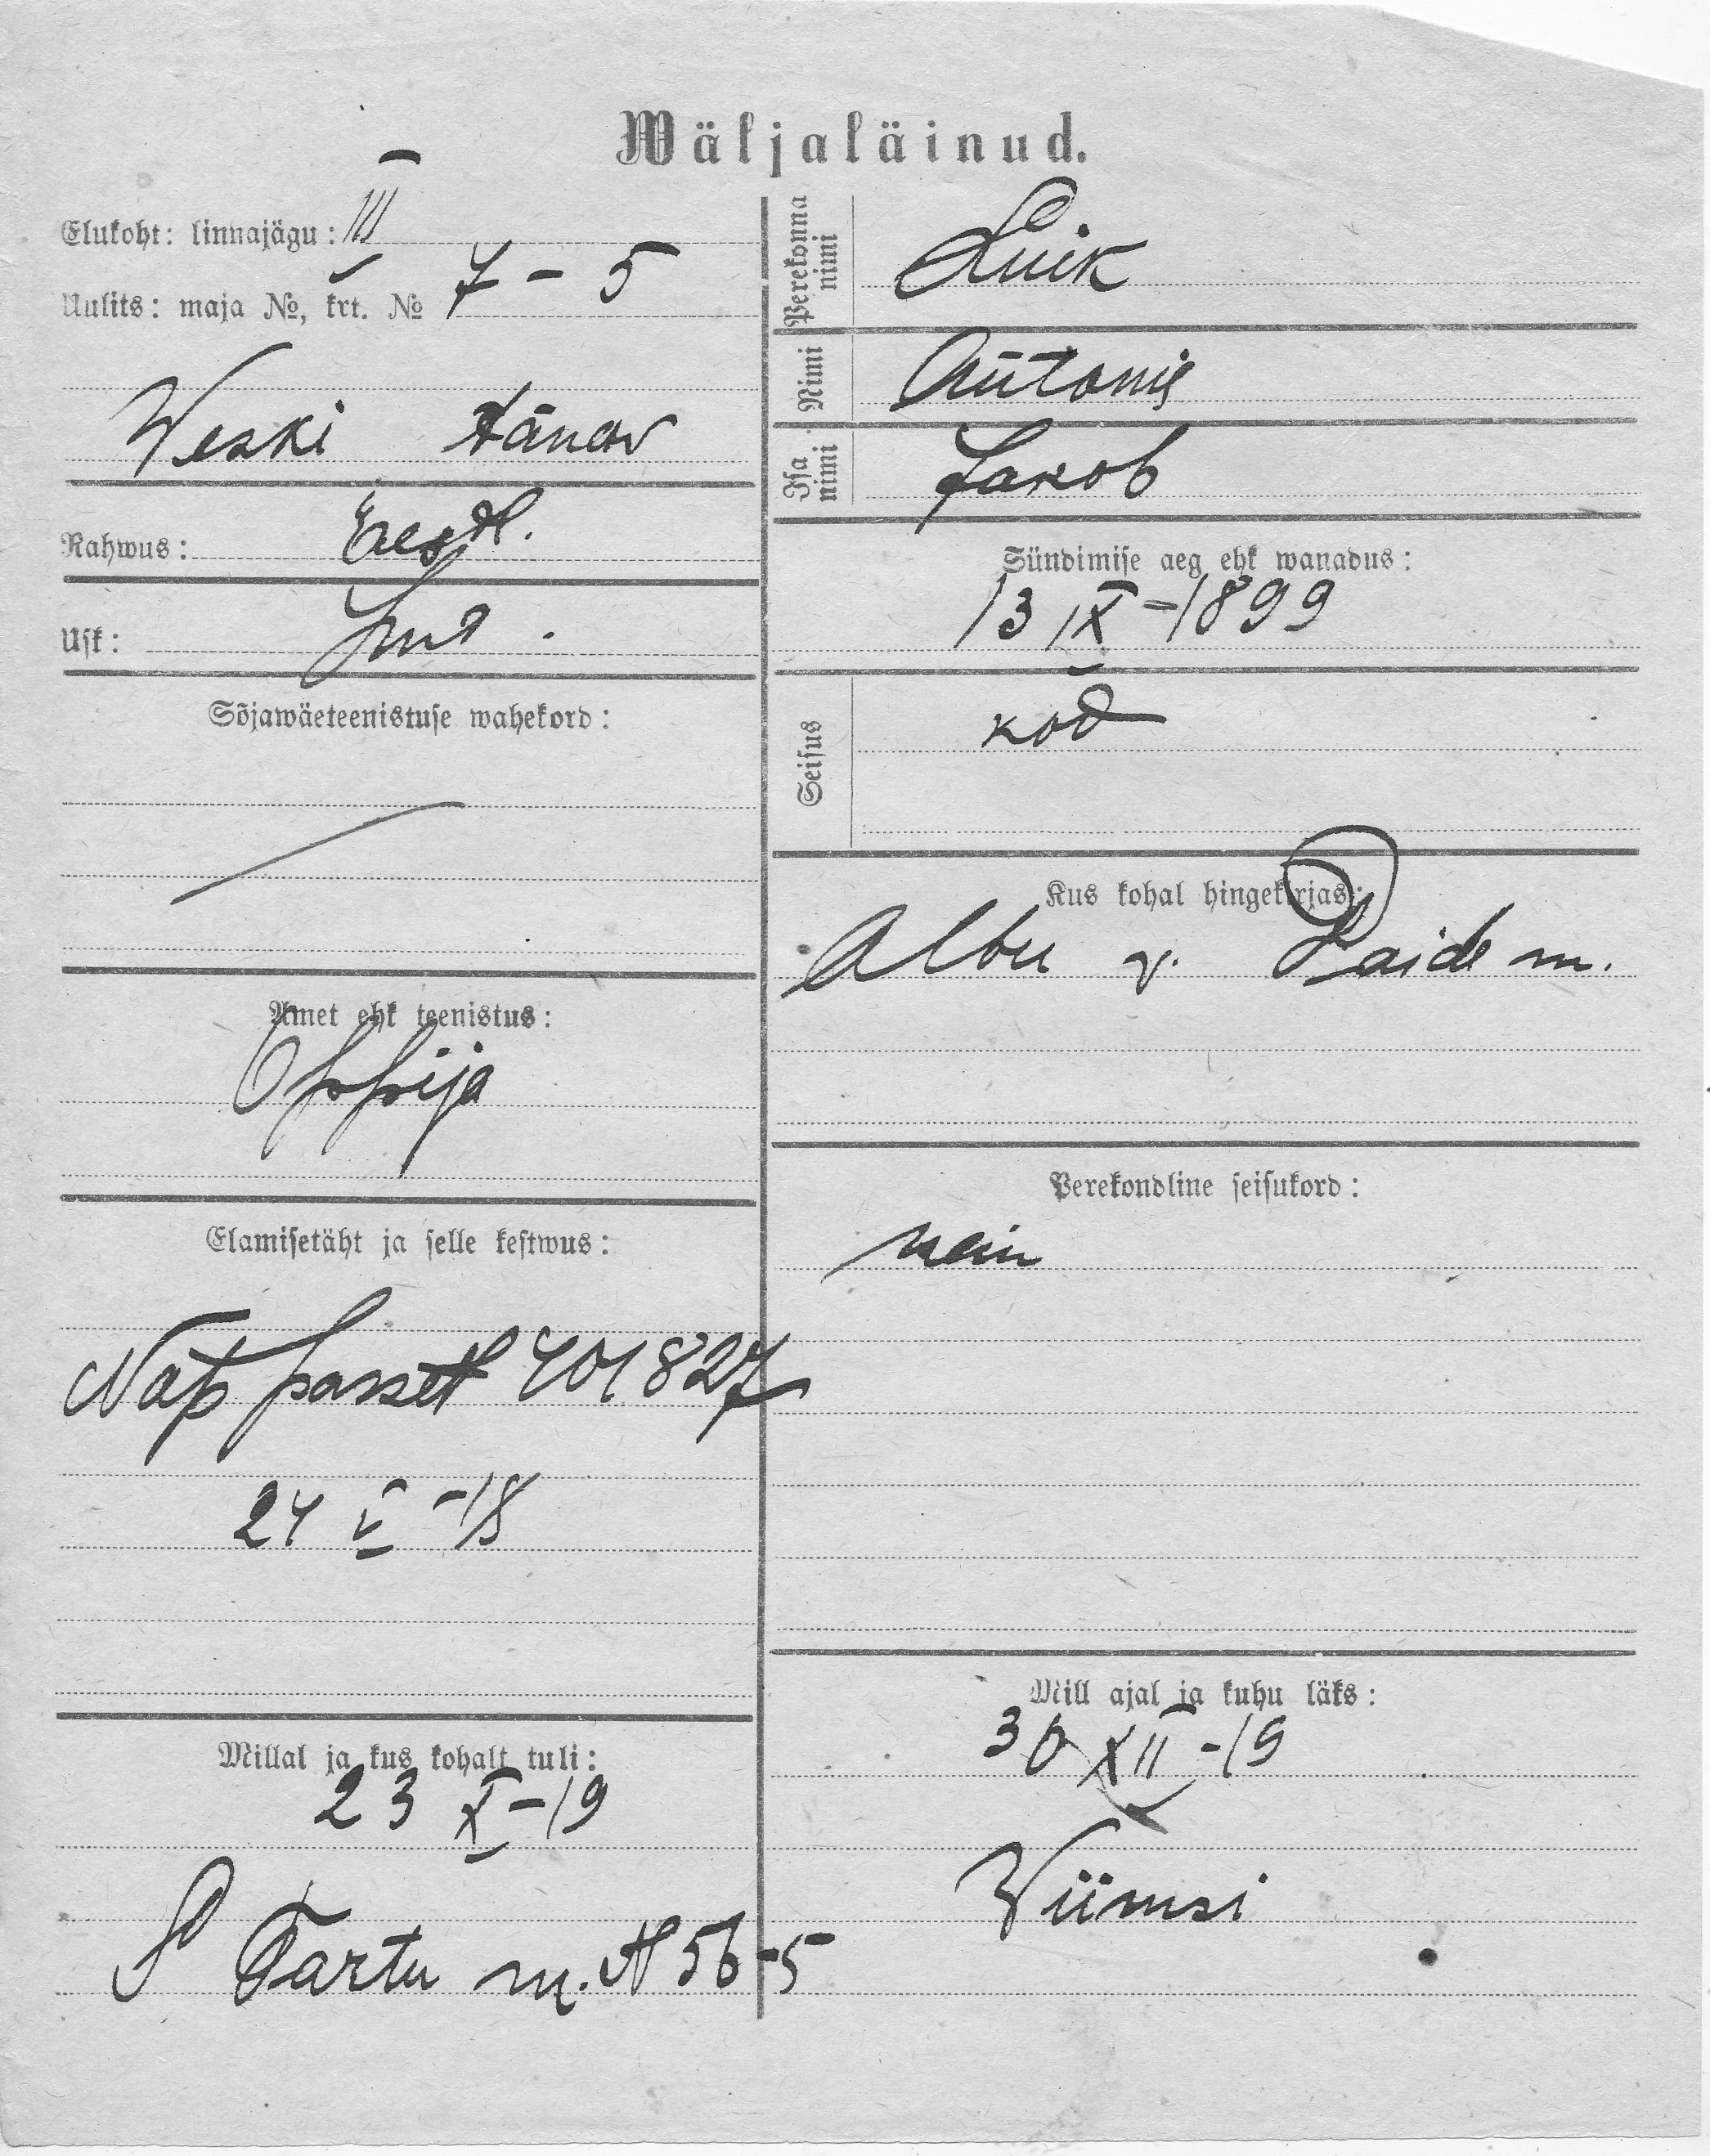 Wäljaläinud.
Elukoht: linnajägu: III
Uulits: maja №, krt. № 7 - 5
Weski tänav
Rahwus: Eestl.
Usk: Lut.
Sõjawäeteenistuse wahekord:
Amet ehk teenistus:
Õppija
Elamisetäht ja selle kestwus:
passett 401827
24 V -18
Millal ja kus kohalt tuli:
23 X - 19
S Tartu m. № 56-5
Perekonna nimi Luik
Nimi
Isa nimi Jakob
Sündimise aeg ehk wanadus:
13 IX - 1899
Seisus kod
Kus kohal hingekirjas:
Albu v. Paide m.
Perekondline seisukord:
Mill ajal ja kuhu läks:
30 XII - 19
Wiimsi